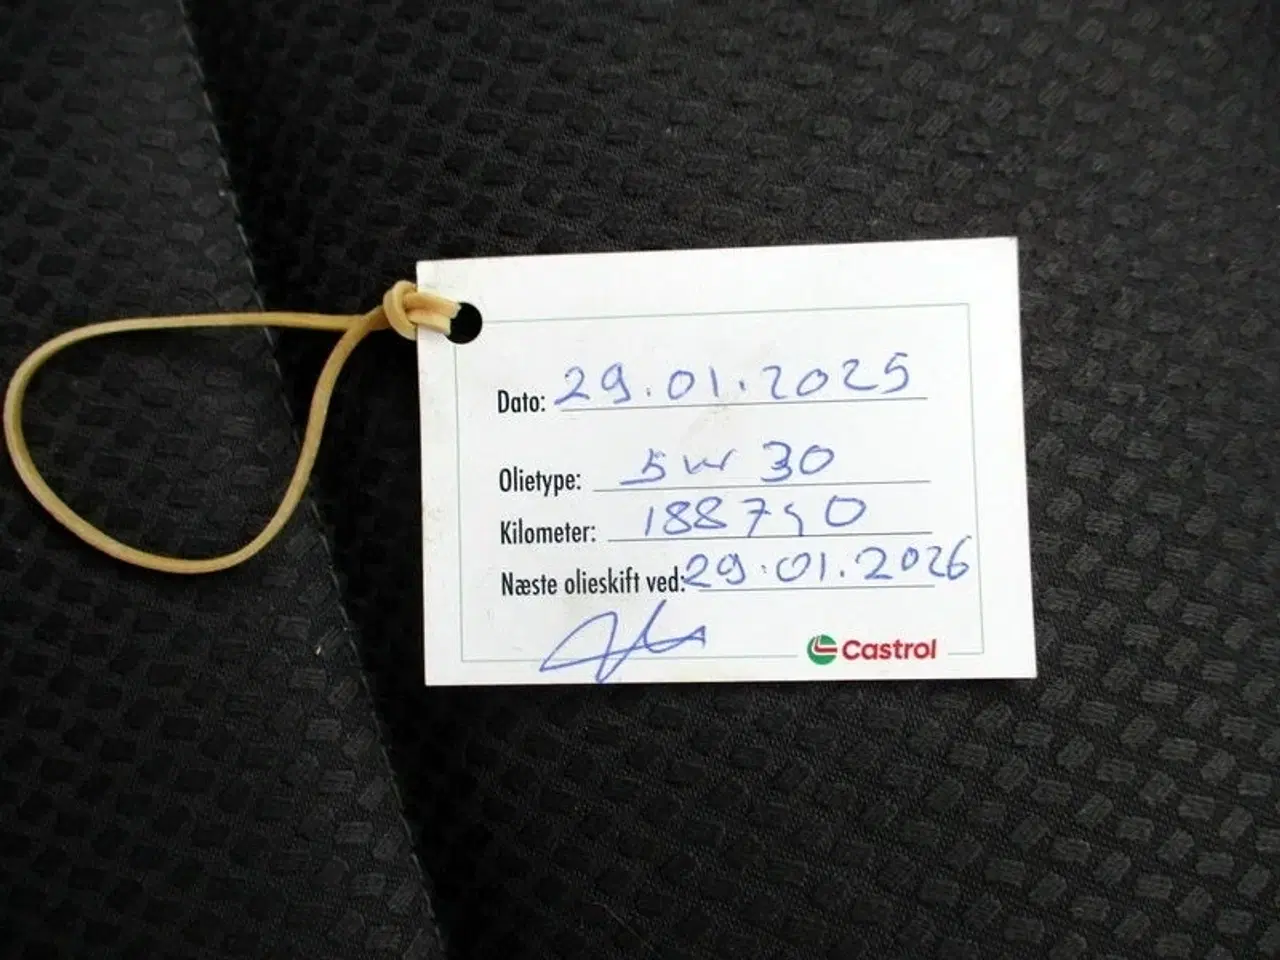 Dato: 29.01.2025
Olietype: 5w30
Kilometer: 188790
Næste olieskift ved: 29.01.2026
Castrol